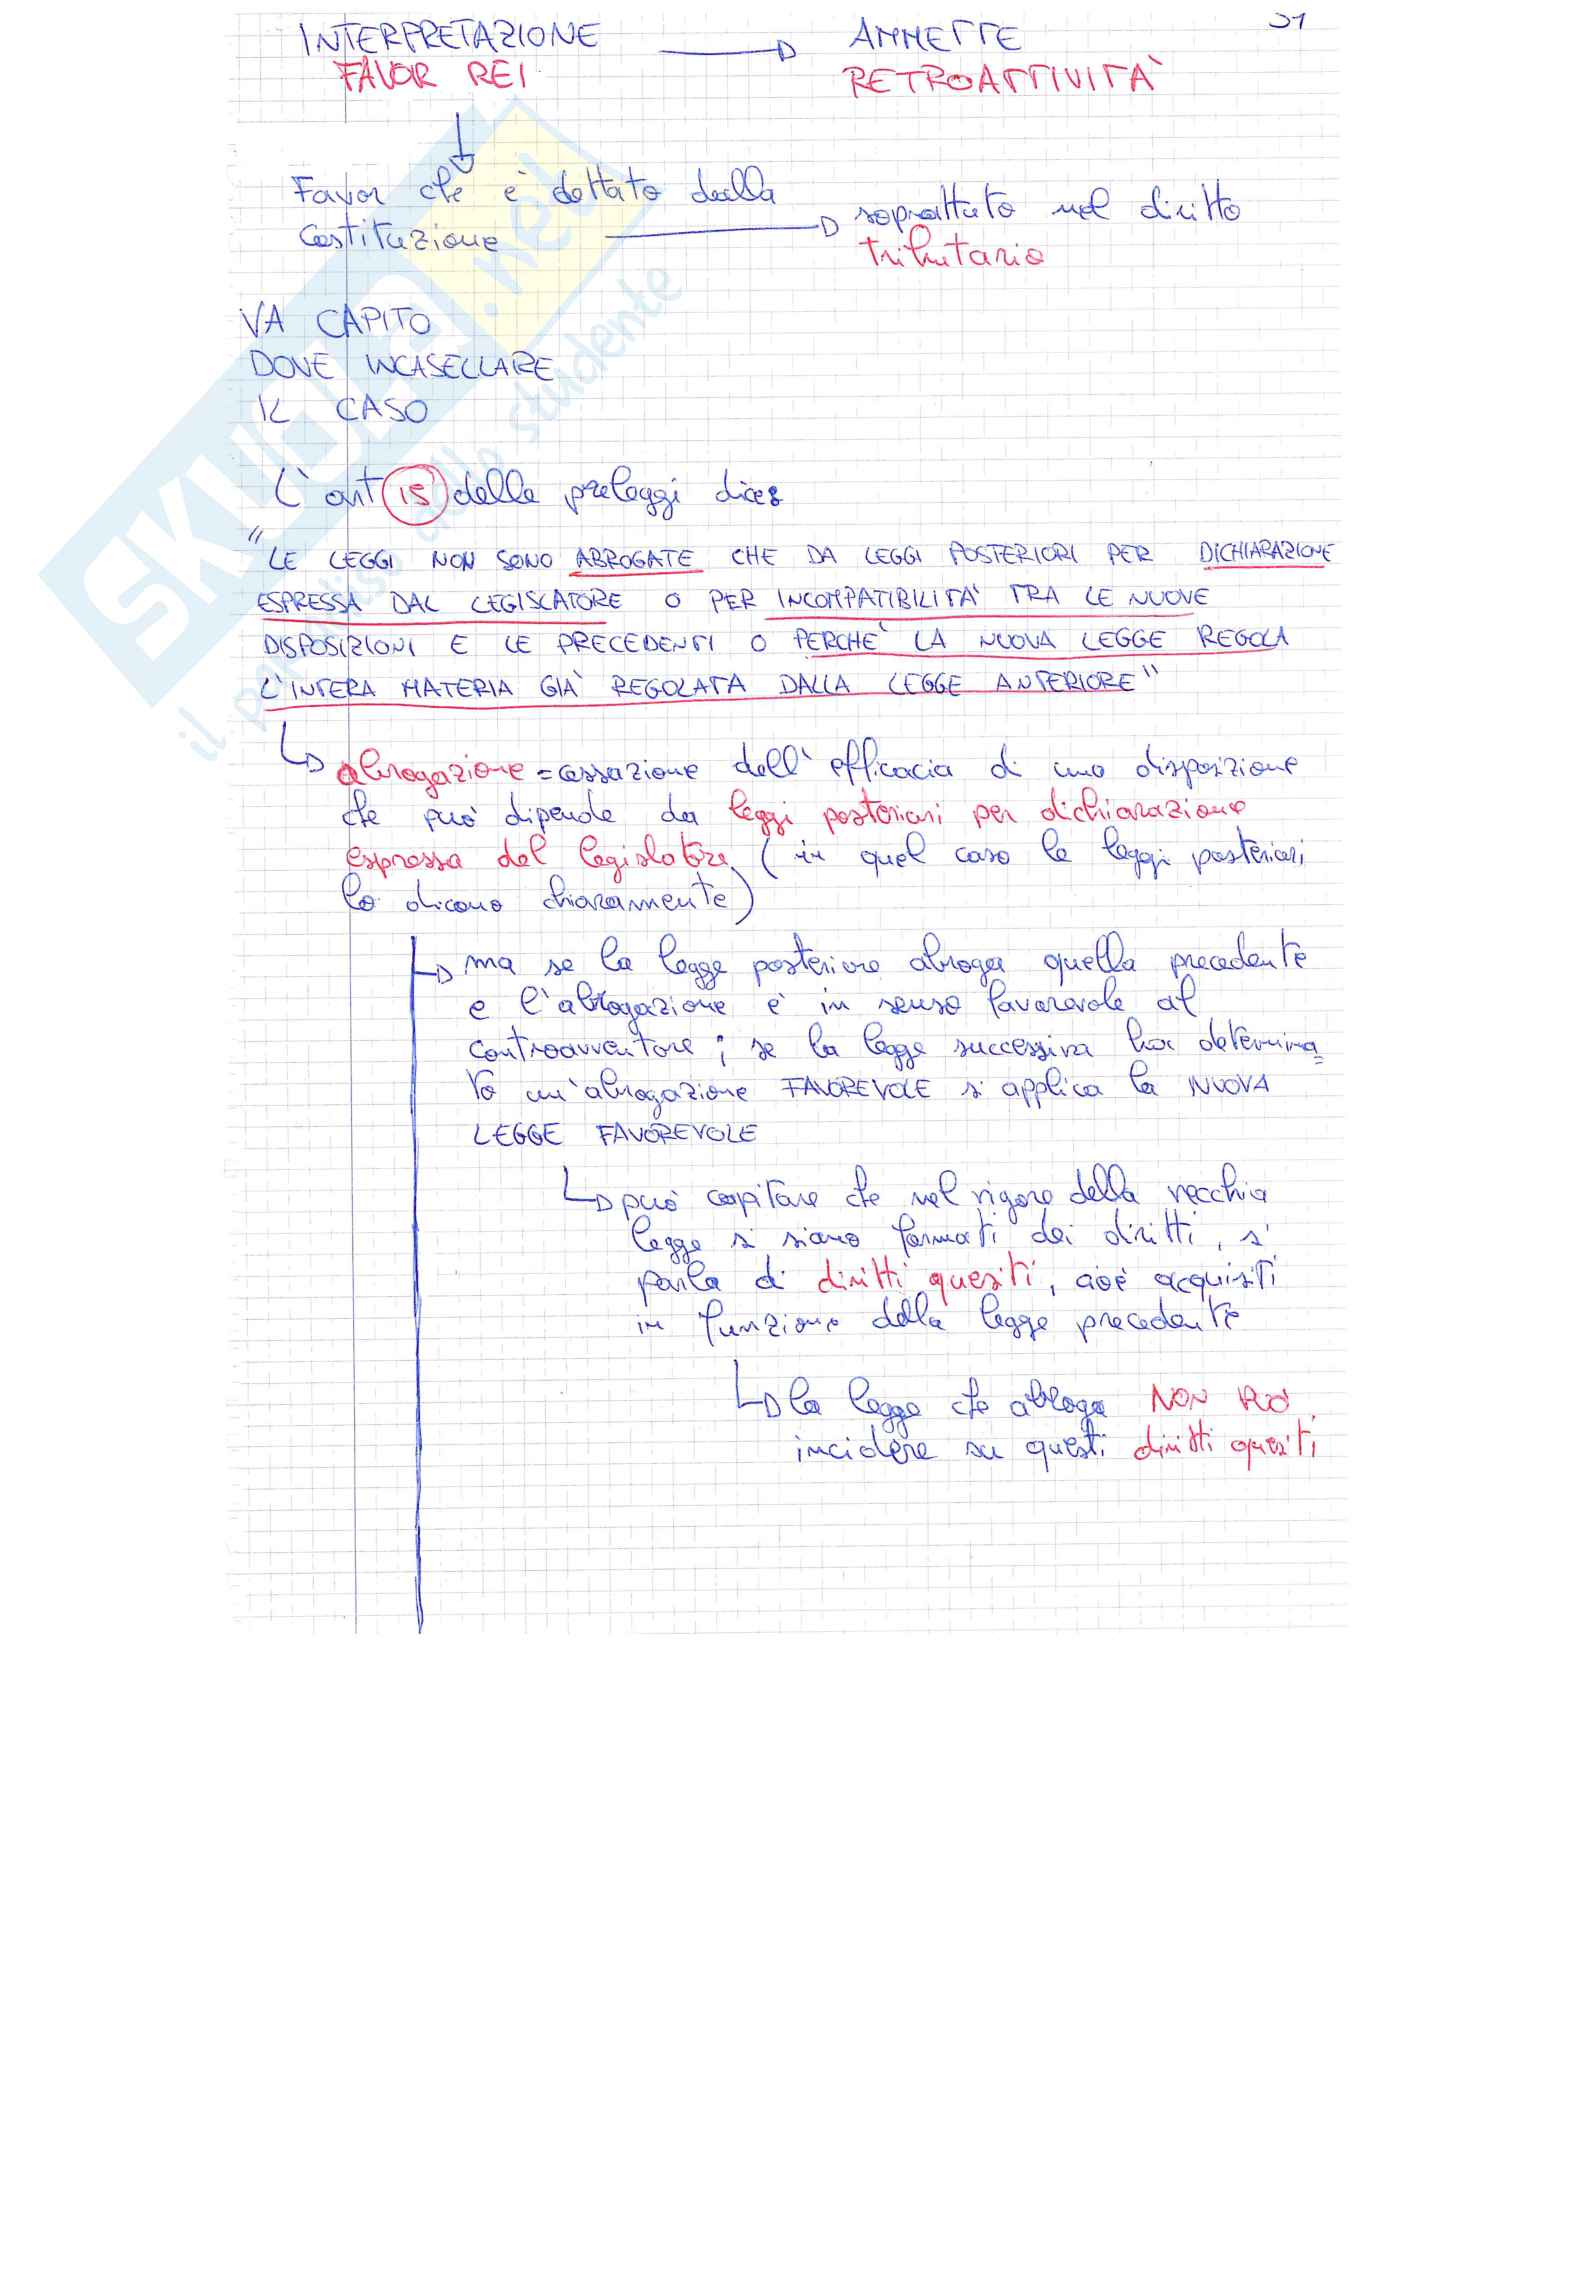 31
INTERPRETAZIONE → AMMETTE
FAVOR REI RETROATTIVITÀ
Favor che è dettato dalla
Costituzione → soprattuto nel diritto
tributario
VA CAPITO
DOVE INCASELLARE
IL CASO
L'art 15 delle preleggi dice:
"LE LEGGI NON SONO ABROGATE CHE DA LEGGI POSTERIORI PER DICHIARAZIONE
ESPRESSA DAL LEGISLATORE O PER INCOMPATIBILITÀ TRA LE NUOVE
DISPOSIZIONI E LE PRECEDENTI O PERCHÈ LA NUOVA LEGGE REGOLA
L'INTERA MATERIA GIÀ REGOLATA DALLA LEGGE ANTERIORE"
abrogazione = cessazione dell'efficacia di una disposizione
che può dipende da leggi posteriori per dichiarazione
espressa del legislatore (in quel caso le leggi posteriori
lo dicono chiaramente)
ma se la legge posteriore abroga quella precedente
e l'abrogazione è in senso favorevole al
controavventore; se la legge successiva ha determina=
to un'abrogazione FAVOREVOLE si applica la NUOVA
LEGGE FAVOREVOLE
può capitare che nel rigore della vecchia
legge si siano formati dei diritti, si
parla di diritti quesiti, cioè acquisiti
in funzione della legge precedente
la legge che abroga NON PUÒ
incidere su questi diritti quesiti
SKUOLA.net
il paradiso dello studente